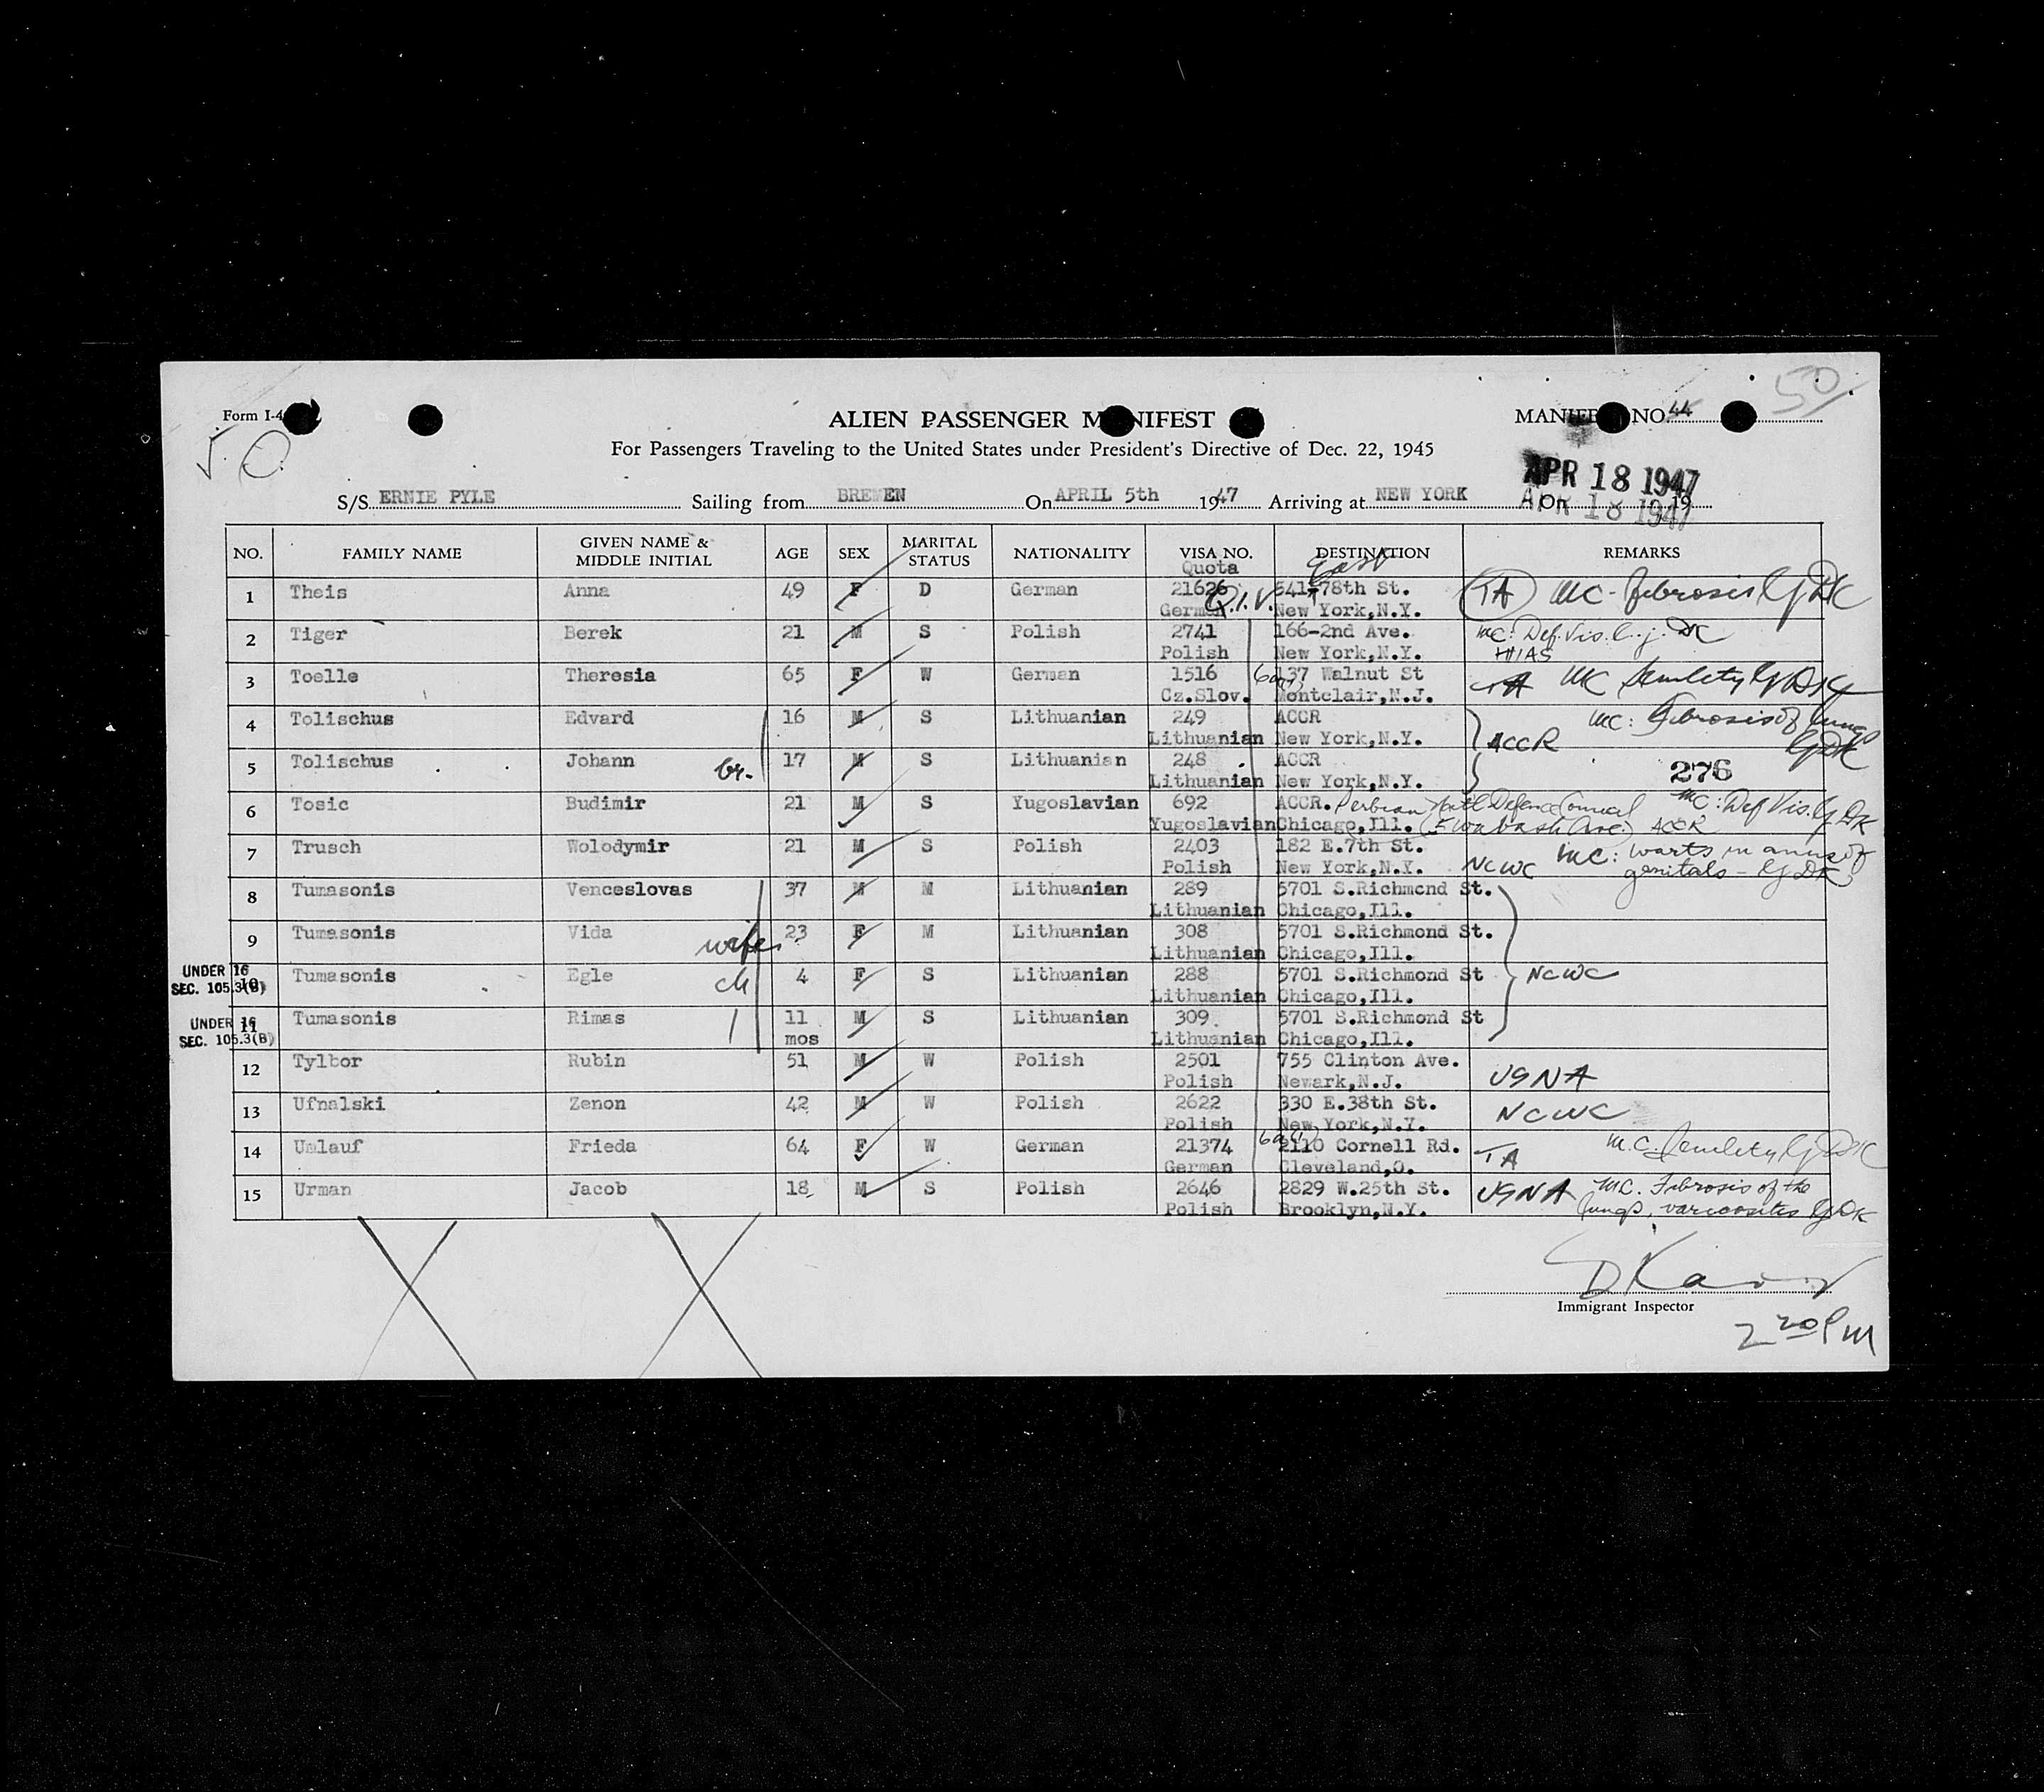 50
Form I-4
ALIEN PASSENGER M NIFEST
MANIFE NO. 44
For Passengers Traveling to the United States under President's Directive of Dec. 22, 1945
APR 18 1947
S/S ERNIE PYLE Sailing from BREMEN On APRIL 5th 1947 Arriving at NEW YORK On 19
APR 18 1947
NO. FAMILY NAME GIVEN NAME & MIDDLE INITIAL AGE SEX MARITAL STATUS NATIONALITY VISA NO. Quota DESTINATION REMARKS
East
1 Theis Anna 49 F D German 21626 541-78th St. TA MC-Fibrosis
German Q.I.V. New York,N.Y.
2 Tiger Berek 21 M S Polish 2741 166-2nd Ave. MC: Def. Vis.
Polish New York,N.Y. HIAS
3 Toelle Theresia 65 F W German 1516 137 Walnut St TA MC Senility
Cz.Slov. Montclair,N.J.
4 Tolischus Edvard 16 M S Lithuanian 249 ACCR MC: Fibrosis of lungs
Lithuanian New York,N.Y. ACCR
5 Tolischus Johann br. 17 M S Lithuanian 248 ACCR 276
Lithuanian New York,N.Y.
6 Tosic Budimir 21 M S Yugoslavian 692 ACCR. Serbian Natl Defence Council MC: Def Vis.
Yugoslavian Chicago,Ill. (5 Wabash Ave.) ACCR
7 Trusch Wolodymir 21 M S Polish 2403 182 E.7th St. MC: warts in anus of
Polish New York,N.Y. NCWC genitals
8 Tumasonis Venceslovas 37 M M Lithuanian 289 5701 S.Richmond St.
Lithuanian Chicago,Ill.
9 Tumasonis Vida wife 23 F M Lithuanian 308 5701 S.Richmond St.
Lithuanian Chicago,Ill.
UNDER 16
SEC. 105.3(B)
10 Tumasonis Egle ch 4 F S Lithuanian 288 5701 S.Richmond St NCWC
Lithuanian Chicago,Ill.
UNDER 16
SEC. 105.3(B)
11 Tumasonis Rimas 11 mos M S Lithuanian 309 5701 S.Richmond St
Lithuanian Chicago,Ill.
12 Tylbor Rubin 51 M W Polish 2501 755 Clinton Ave. USNA
Polish Newark,N.J.
13 Ufnalski Zenon 42 M W Polish 2622 330 E.38th St. NCWC
Polish New York,N.Y.
14 Umlauf Frieda 64 F W German 21374 2110 Cornell Rd. TA M.C. Senility
German Cleveland,O.
15 Urman Jacob 18 M S Polish 2646 2829 W.25th St. USNA MC. Fibrosis of the
Polish Brooklyn,N.Y. lungs, varicosities
Immigrant Inspector
2 20 PM